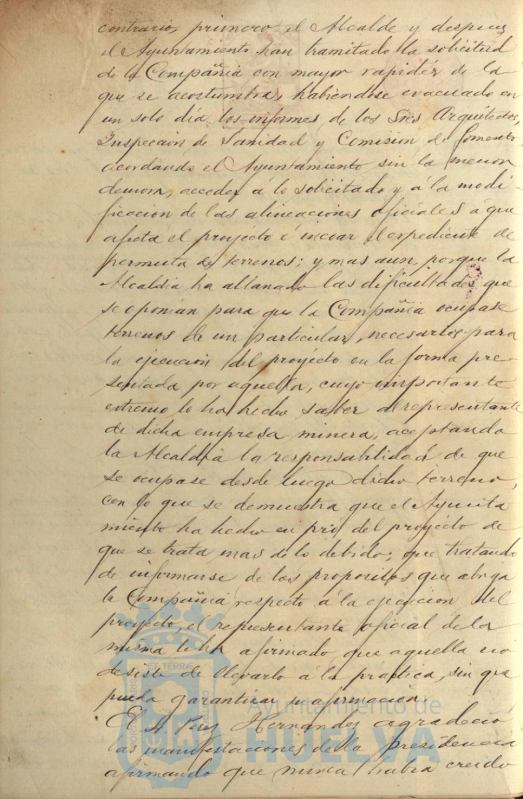 contrario, primero el Alcalde y despues
el Ayuntamiento han tramitado la solicitud
de la Compañia con mayor rapidez de la
que se acostumbra, habiendose evacuado en
un solo dia los informes de los Sres Arquitectos,
Inspeccion de Sanidad y Comision de Fomento
acordando el Ayuntamiento sin la menor
demora, acceder á lo solicitado y á la modi-
ficacion de las alineaciones oficiales á que
afecta el proyecto é iniciar el expediente de
permuta de terrenos; y mas aun, porque la
Alcaldia ha allanado las dificultades que
se oponian para que la Compañia ocupase
terrenos de un particular, necesarios para
la ejecucion del proyecto en la forma pre-
sentada por aquella, cuyo importante
extremo le ha hecho saber al representante
de dicha empresa minera, aceptando
la Alcaldia la responsabilidad de que
se ocupase desde luego dicho terreno,
con lo que se demuestra que el Ayunta
miento ha hecho en pró del proyecto de
que se trata, mas de lo debido; que tratando
de informarse de los propositos que abriga
la Compañia respecto á la ejecucion del
proyecto, el representante oficial de la
misma le ha afirmado que aquella no
desiste de llevarlo á la practica, sin que
pueda garantizar su afirmacion.
El Sr. Hernandez agradeció
las manifestaciones de la presidencia
afirmando que nunca habia creido
Ayuntamiento de
HUELVA